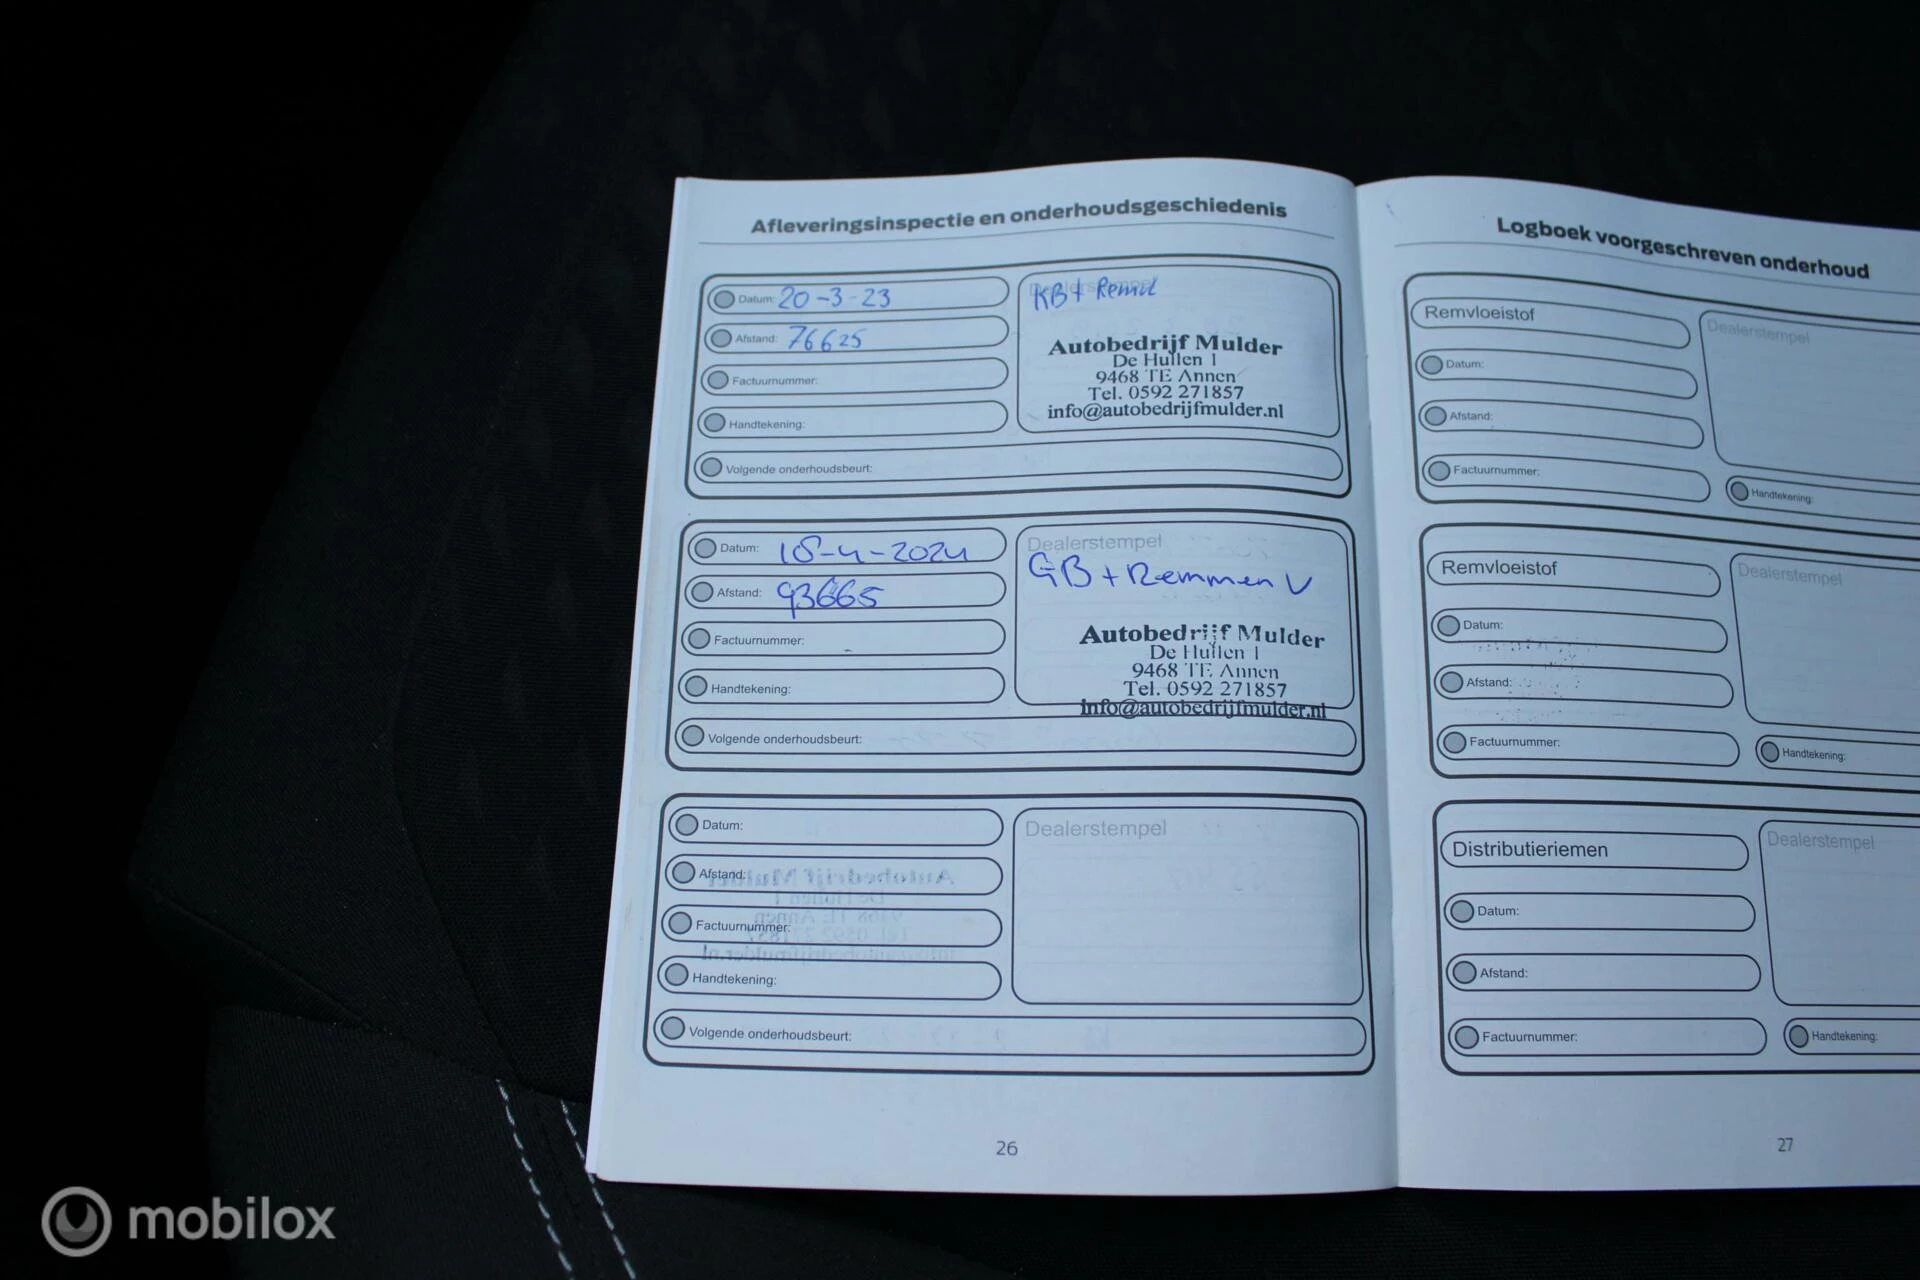 Afleveringsinspectie en onderhoudsgeschiedenis
Datum: 20-3-23
Afstand: 76625
Factuurnummer:
Handtekening:
Volgende onderhoudsbeurt:
KB + Remvl
Autobedrijf Mulder
De Hullen 1
9468 TE Annen
Tel. 0592 271857
info@autobedrijfmulder.nl
Datum: 18-4-2024
Afstand: 93665
Factuurnummer:
Handtekening:
Volgende onderhoudsbeurt:
Dealerstempel
GB + Remmen V
Autobedrijf Mulder
De Hullen 1
9468 TE Annen
Tel. 0592 271857
info@autobedrijfmulder.nl
Datum:
Afstand:
Factuurnummer:
Handtekening:
Volgende onderhoudsbeurt:
Dealerstempel
26
Logboek voorgeschreven onderhoud
Remvloeistof
Datum:
Afstand:
Factuurnummer:
Dealerstempel
Handtekening:
Remvloeistof
Datum:
Afstand:
Factuurnummer:
Dealerstempel
Handtekening:
Distributieriemen
Datum:
Afstand:
Factuurnummer:
Dealerstempel
Handtekening:
27
mobilox